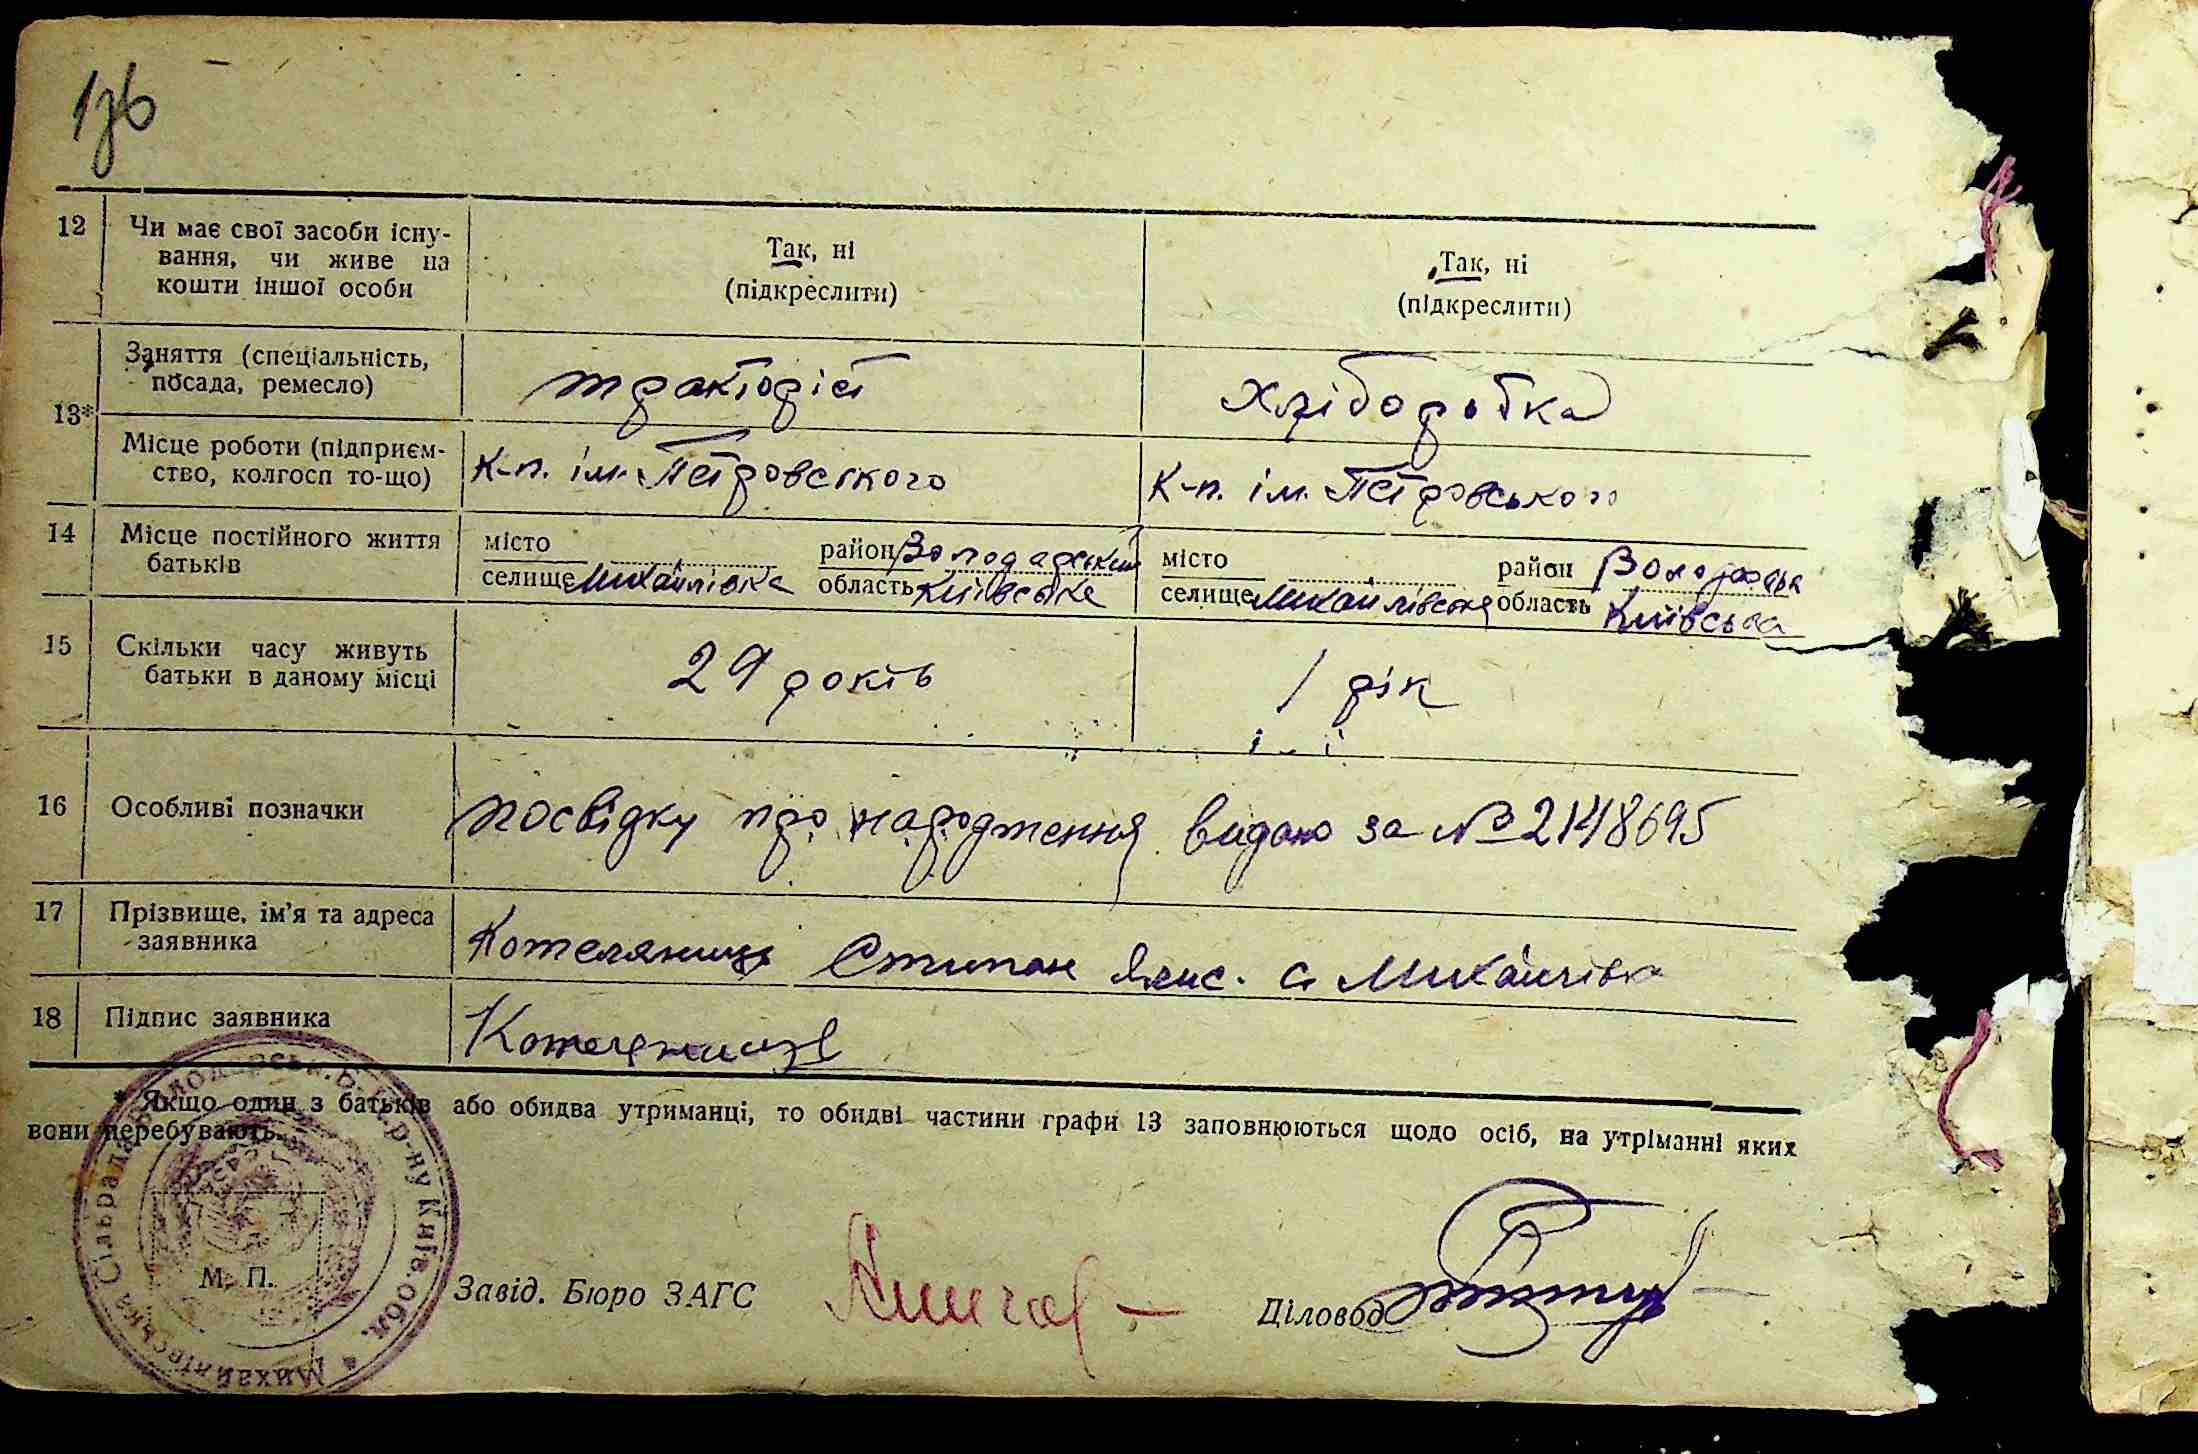 136
12 Чи має свої засоби існу-
вання, чи живе на
кошти іншої особи
Так, ні
(підкреслити)
Так, ні
(підкреслити)
13*
Заняття (спеціальність,
посада, ремесло)
тракторіст
хліборобка
Місце роботи (підприєм-
ство, колгосп то-що)
к-п. ім. Петровського
к-п. ім. Петровського
14 Місце постійного життя
батьків
місто район Володарський
селище Михайлівка область Київська
місто район
селище область Київська
15 Скільки часу живуть
батьки в даному місці
29 років
1 рік
16 Особливі позначки
посвідку про народження видано за № 2148695
17 Прізвище, ім'я та адреса
заявника
Степан с. Михайлівка
18 Підпис заявника
* Якщо один з батьків або обидва утриманці, то обидві частини графи 13 заповнюються щодо осіб, на утріманні яких
вони перебувають.
Михайлівська Сільрада р-ну Київ. обл.
М. П.
Завід. Бюро ЗАГС
Діловод